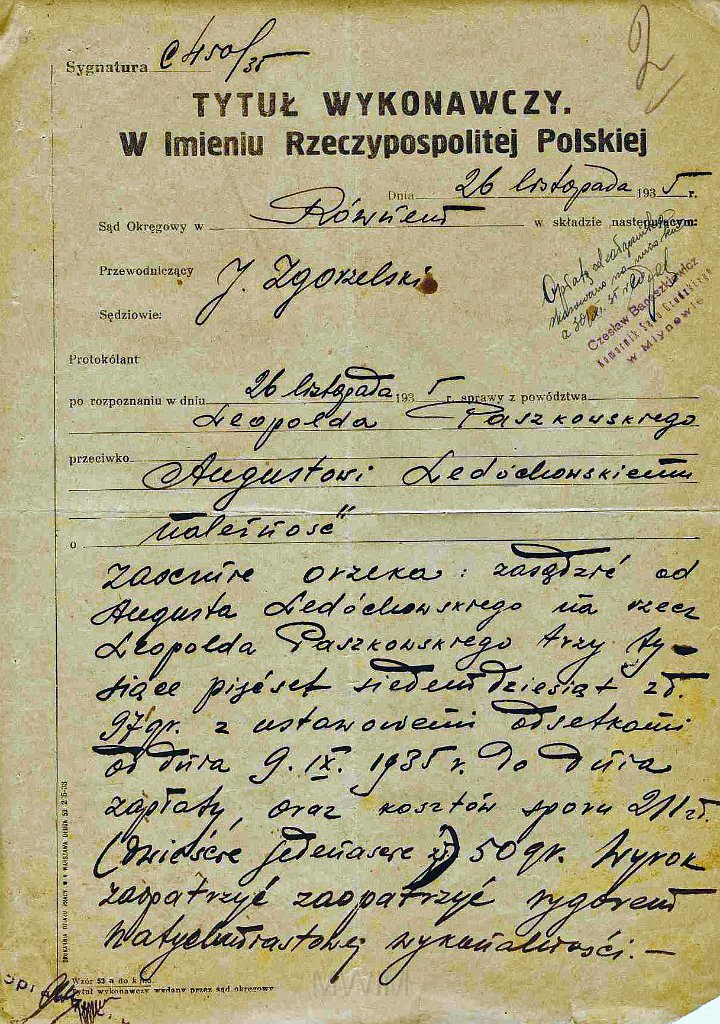 2
Sygnatura C 450/35
TYTUŁ WYKONAWCZY.
W Imieniu Rzeczypospolitej Polskiej
Dnia 26 listopada 1935 r.
Sąd Okręgowy w Równem w składzie następującym:
Przewodniczący J. Zgorzelski
Sędziowie:
Czesław
w Młynowie
Protokólant
po rozpoznaniu w dniu 26 listopada 1935 r. sprawy z powództwa
Leopolda Paszkowskiego
przeciwko Augustowi Ledóchowskiemu
o należność
zaocznie orzeka: zasądzić od
Augusta Ledóchowskiego na rzecz
Leopolda Paszkowskiego trzy ty-
siące pięćset siedemdziesiąt zł.
97 gr. z ustawowemi odsetkami
od dnia 9. IX. 1935 r. do dnia
zapłaty, oraz kosztów sporu 211 zł.
(dwieście jedenaście zł) 50 gr. Wyrok
zaopatrzyć zaopatrzyć rygorem
natychmiastowej wykonalności. —
Wzór 53 a do k.p.c.
Tytuł wykonawczy wydany przez sąd okręgowy
MWM